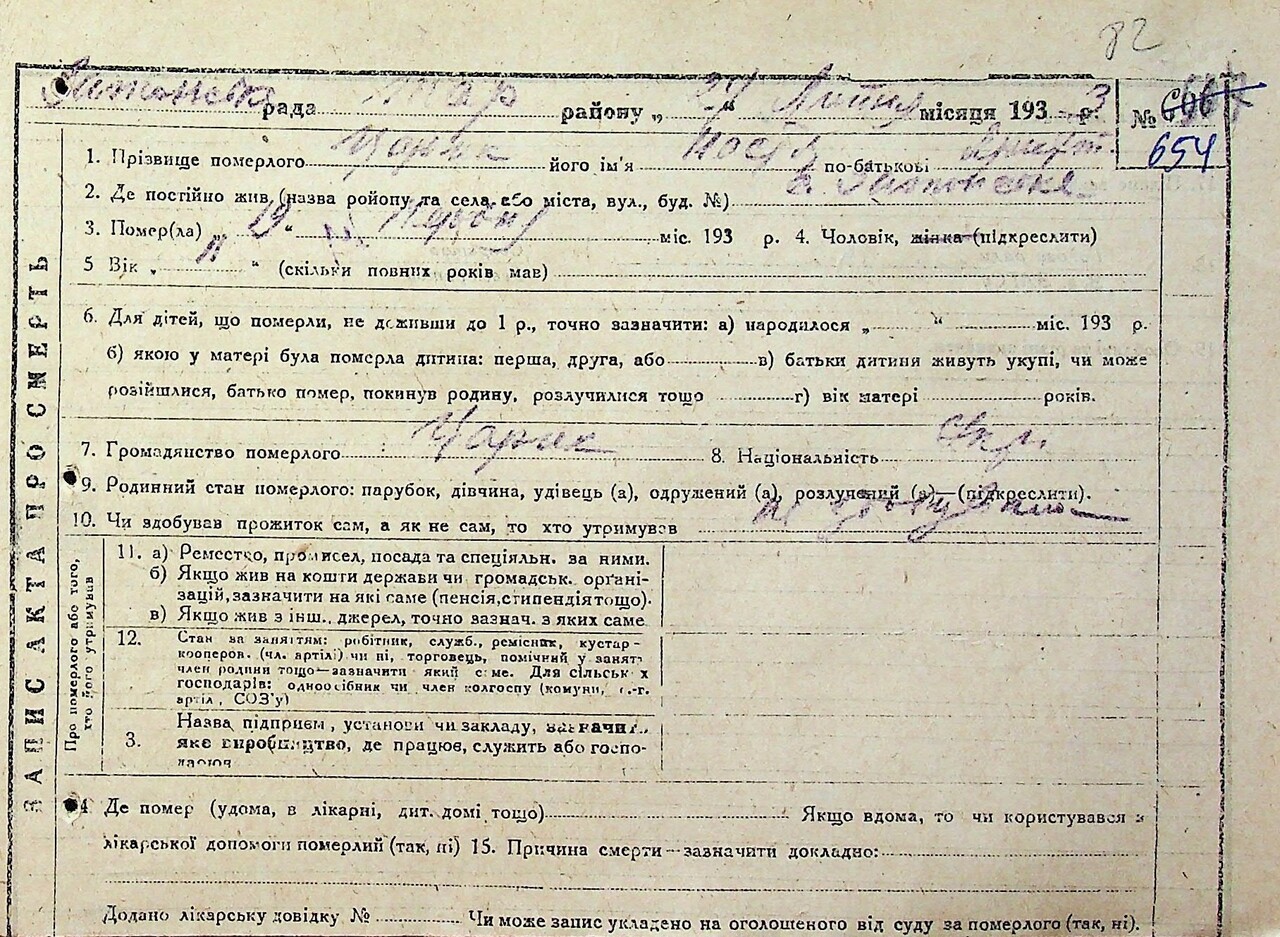 82
рада района „27“ Липня місяця 193 3 р. № 606 654
1. Прізвище померлого Царик його ім'я по-батькові
2. Де постійно жив (назва ройопу та села, або міста, вул., буд. №) с.
3. Помер(ла) „ 19 “ Червня міс. 193 р. 4. Чоловік, жінка (підкреслити)
5 Вік „ “ (скільки повних років мав)
6. Для дітей, що померли, не доживши до 1 р., точно зазначити: а) народилося „ “ міс. 193 р.
б) якою у матері була померла дитина: перша, друга, або в) батьки дитини живуть укупі, чи може
розійшлися, батько помер, покинув родину, розлучилися тощо г) вік матері років.
7. Громадянство померлого Царик 8. Національність Укр.
9. Родинний стан померлого: парубок, дівчина, удівець (а), одружений (а), розлучений (а)—(підкреслити).
10. Чи здобував прожиток сам, а як не сам, то хто утримував не
ЗАПИС АКТА ПРО СМЕРТЬ
Про померлого або того, хто його утримував
11. а) Ремество, промисел, посада та спеціяльн. за ними.
б) Якщо жив на кошти держави чи громадськ. орґані-
зацій, зазначити на які саме (пенсія, стипендія тощо).
в) Якщо жив з інш. джерел, точно зазнач. з яких саме
12. Стан за заняттям: робітник, служб., ремісник, кустар-
кооперов. (чл. артілі) чи ні, торговець, помічний у занят.
член родини тощо—зазначити який саме. Для сільськ х
господарів: одноосібник чи член колгоспу (комуни, с.-г.
артіл, СОЗ'у)
3. Назва підприєм, установи чи закладу, зазначит.,
яке виробництво, де працює, служить або госпо-
дарює
4 Де помер (удома, в лікарні, дит. домі тощо) Якщо вдома, то чи користувався з
лікарської допомоги померлий (так, ні) 15. Причина смерти—зазначити докладно:
Додано лікарську довідку № Чи може запис укладено на оголошеного від суду за померлого (так, ні).